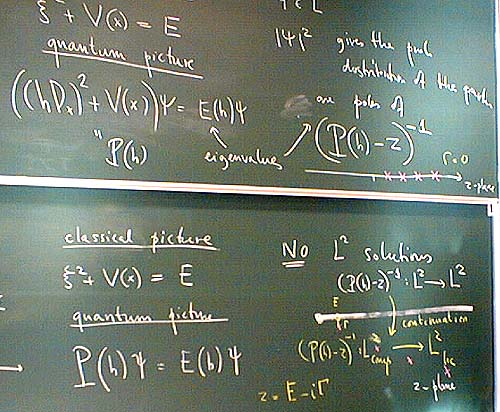 ξ² + V(x) = E
quantum picture
((hDₓ)² + V(x))ψ = E(h)ψ
" P(h)
eigenvalues
|ψ|² gives the prob
distribution of the
are poles of
(P(h) - z)⁻¹
z-plane
classical picture
ξ² + V(x) = E
quantum picture
P(h)ψ = E(h)ψ
NO L² solutions
(P(h)-z)⁻¹ : L² → L²
E
continuation
(P(h)-z)⁻¹ : L²comp → L²loc
z = E - iΓ
z-plane